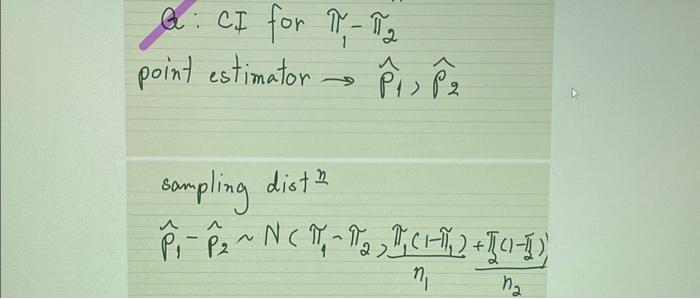 Q: CI for π₁ - π₂
point estimator → p̂₁, p̂₂
sampling distⁿ
p̂₁ - p̂₂ ~ N(π₁ - π₂, π₁(1-π₁)/n₁ + π₂(1-π₂)/n₂)